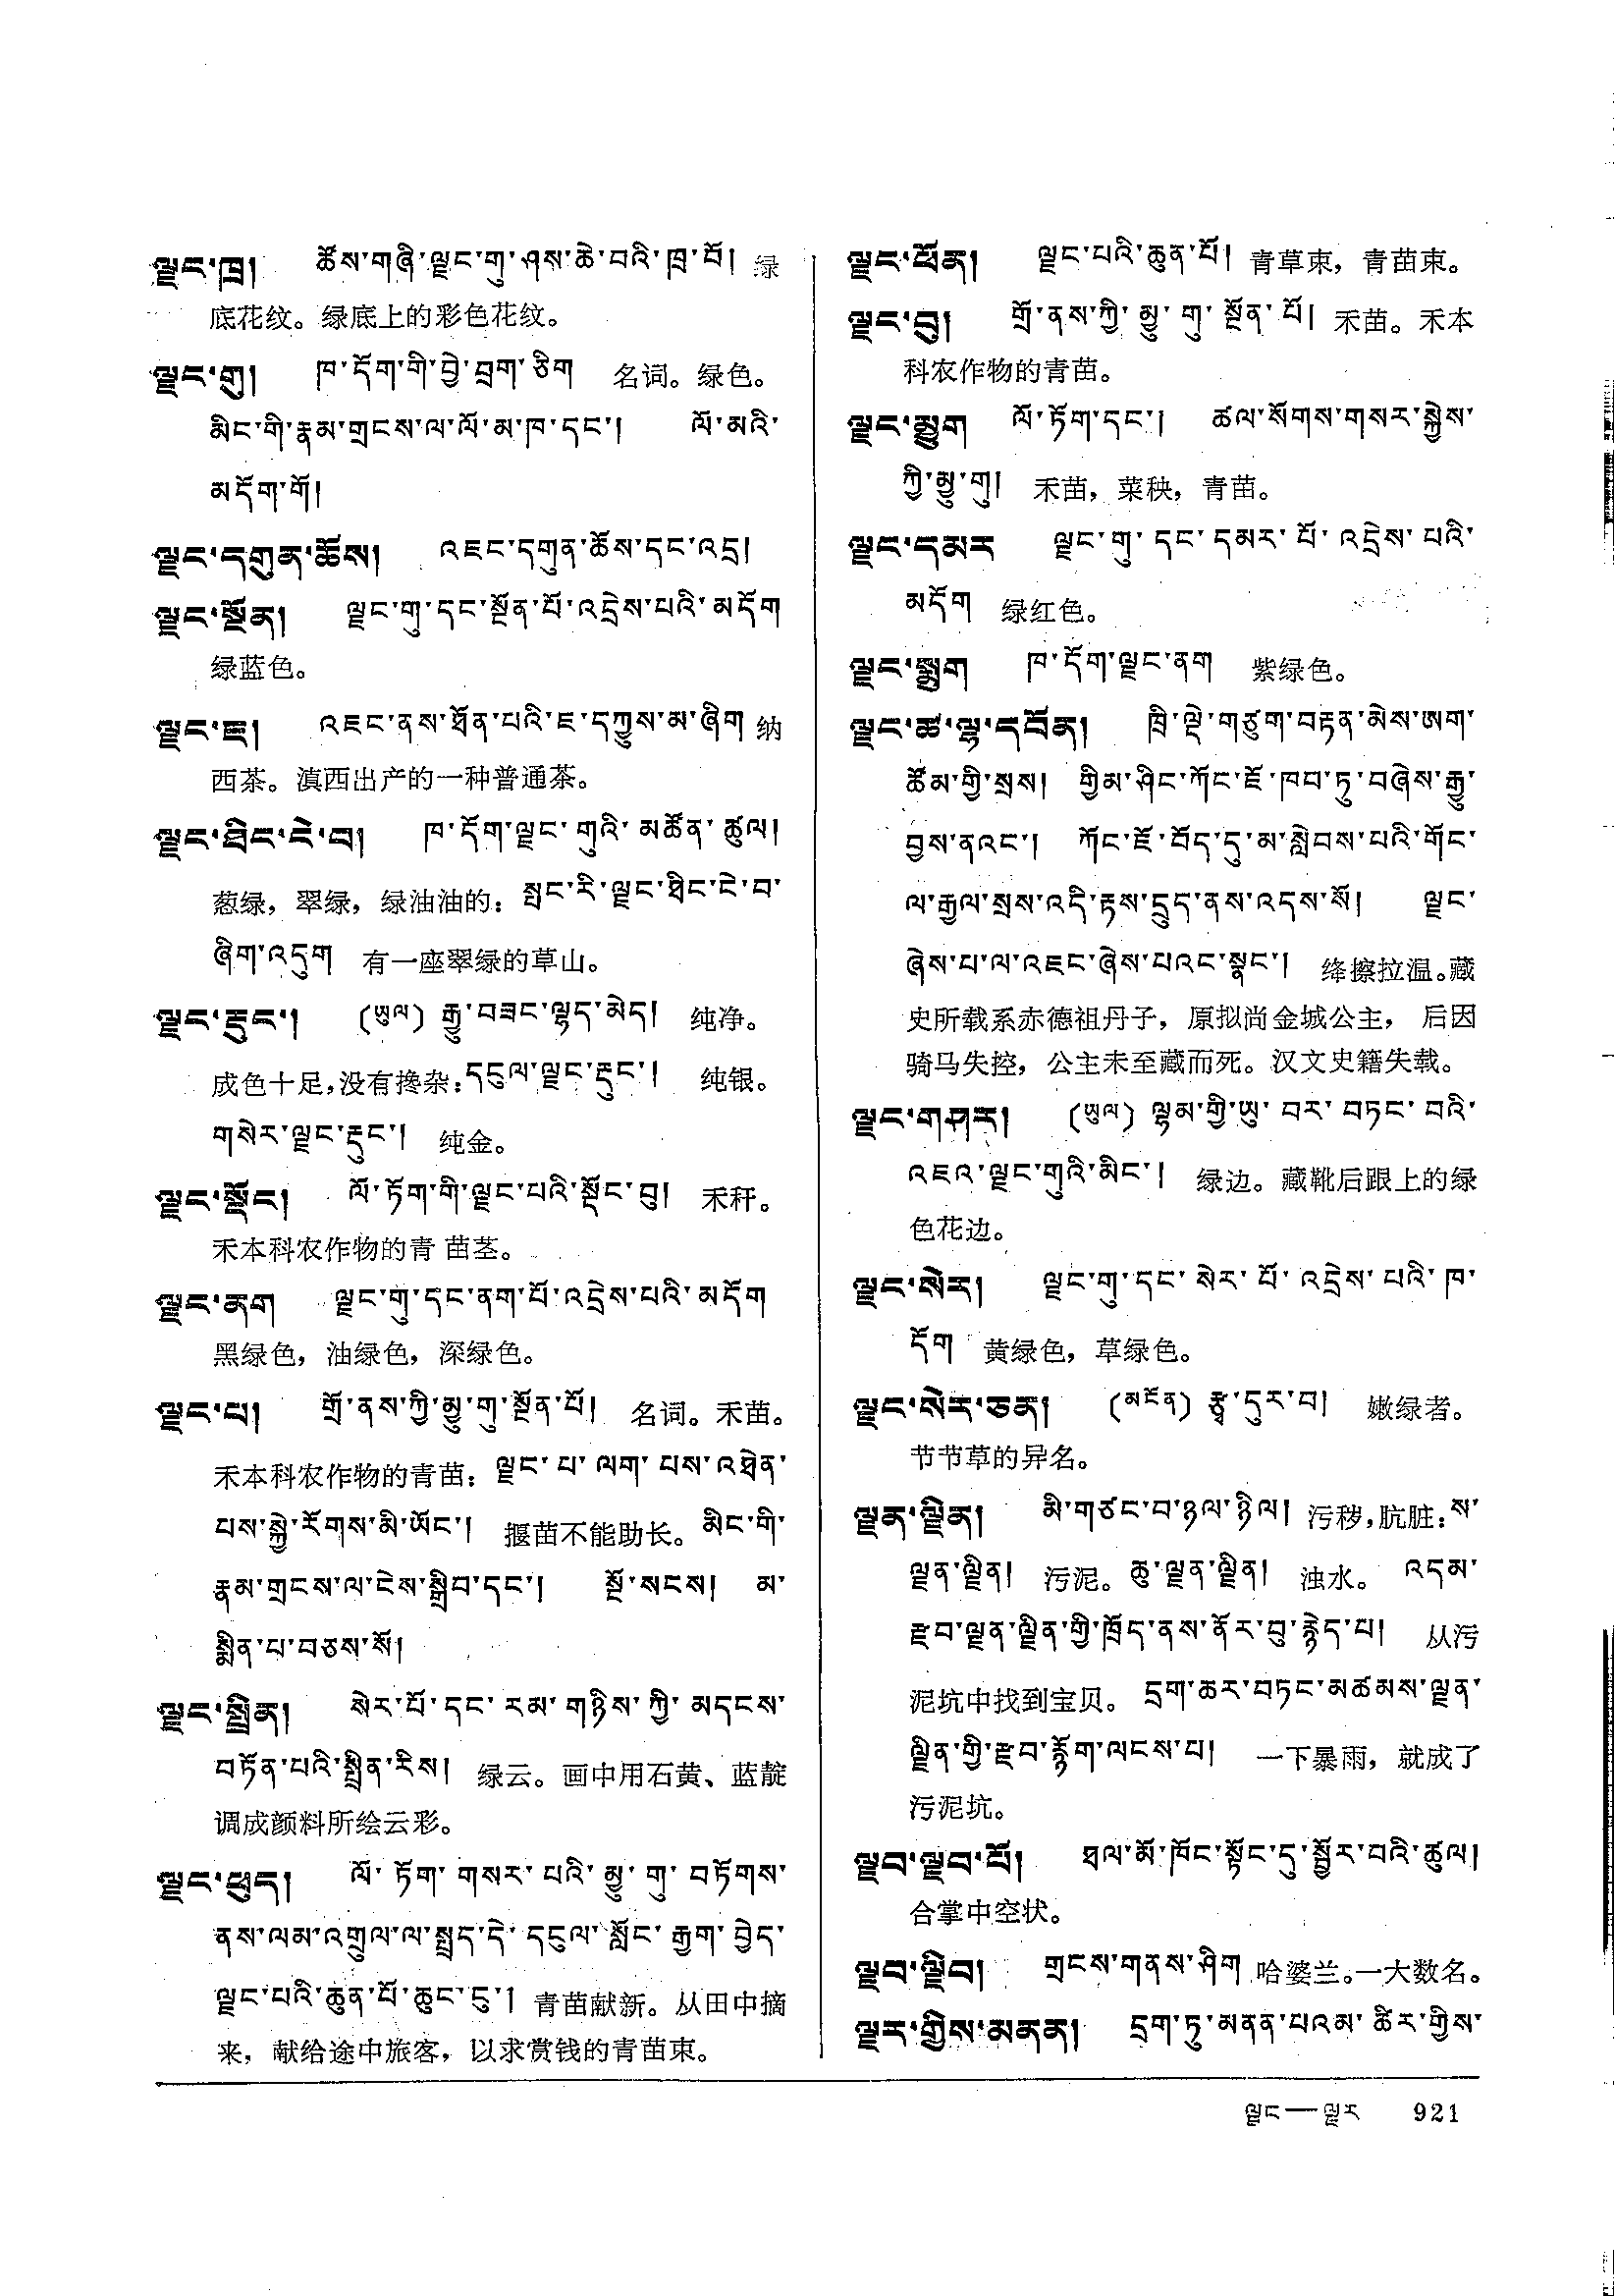 ལྗང་ཁྲ། ཚོས་གཞི་ལྗང་གུ་ཤས་ཆེ་བའི་ཁྲ་བོ། 绿
底花纹。绿底上的彩色花纹。
ལྗང་གུ། ཁ་དོག་གི་བྱེ་བྲག་ཅིག 名词。绿色。
མིང་གི་རྣམ་གྲངས་ལ་ལོ་མ་ཁ་དང་། ལོ་མའི་
མདོག་གོ།
ལྗང་དགུན་ཚོས། འཇང་དགུན་ཚོས་དང་འདྲ།
ལྗང་སྔོན། ལྗང་གུ་དང་སྔོན་པོ་འདྲེས་པའི་མདོག
绿蓝色。
ལྗང་ཇ། འཇང་ནས་ཐོན་པའི་ཇ་དཀྱུས་མ་ཞིག 纳
西茶。滇西出产的一种普通茶。
ལྗང་ཐིང་ངེ་བ། ཁ་དོག་ལྗང་གུའི་མཚོན་ཚུལ།
葱绿，翠绿，绿油油的：སྤང་རི་ལྗང་ཐིང་ངེ་བ་
ཞིག་འདུག 有一座翠绿的草山。
ལྗང་རྡུང་། (ཡུལ) རྒྱུ་བཟང་ལྷད་མེད། 纯净。
成色十足，没有搀杂：དངུལ་ལྗང་རྡུང་། 纯银。
གསེར་ལྗང་རྡུང་། 纯金。
ལྗང་སྡོང། ལོ་ཏོག་གི་ལྗང་པའི་སྡོང་བུ། 禾秆。
禾本科农作物的青苗茎。
ལྗང་ནག ལྗང་གུ་དང་ནག་པོ་འདྲེས་པའི་མདོག
黑绿色，油绿色，深绿色。
ལྗང་པ། གྲོ་ནས་ཀྱི་མྱུ་གུ་སྔོན་པོ། 名词。禾苗。
禾本科农作物的青苗：ལྗང་པ་ལག་པས་འཐེན་
པས་སྐྱེ་རོགས་མི་ཡོང་། 揠苗不能助长。མིང་གི་
རྣམ་གྲངས་ལ་ངེས་སྒྲིབ་དང་། སྔོ་སངས། མ་
སྨིན་པ་བཅས་སོ།
ལྗང་སྤྲིན། སེར་པོ་དང་རམ་གཉིས་ཀྱི་མདངས་
བཏོན་པའི་སྤྲིན་རིས། 绿云。画中用石黄、蓝靛
调成颜料所绘云彩。
ལྗང་ཕུད། ལོ་ཏོག་གསར་པའི་མྱུ་གུ་བཏོགས་
ནས་ལམ་འགྲུལ་ལ་སྤྲད་དེ་དངུལ་སློང་རྒྱག་བྱེད་
ལྗང་པའི་ཆུན་པོ་ཆུང་ངུ་། 青苗献新。从田中摘
来，献给途中旅客，以求赏钱的青苗束。
ལྗང་ཕོན། ལྗང་པའི་ཆུན་པོ། 青草束，青苗束。
ལྗང་བུ། གྲོ་ནས་ཀྱི་མྱུ་གུ་སྔོན་པོ། 禾苗。禾本
科农作物的青苗。
ལྗང་མྱུག ལོ་ཏོག་དང་། ཚལ་སོགས་གསར་སྐྱེས་
ཀྱི་མྱུ་གུ། 禾苗，菜秧，青苗。
ལྗང་དམར ལྗང་གུ་དང་དམར་པོ་འདྲེས་པའི་
མདོག 绿红色。
ལྗང་སྨུག ཁ་དོག་ལྗང་ནག 紫绿色。
ལྗང་ཚ་ལྷ་དབོན། ཁྲི་ལྡེ་གཙུག་བརྟན་མེས་ཨག་
ཚོམ་གྱི་སྲས། གྱིམ་ཤིང་ཀོང་ཇོ་ཁབ་ཏུ་བཞེས་རྒྱུ་
བྱས་ནའང་། ཀོང་ཇོ་བོད་དུ་མ་སླེབས་པའི་གོང་
ལ་རྒྱལ་སྲས་འདི་རྟས་དྲུད་ནས་འདས་སོ། ལྗང་
ཞེས་པ་ལ་འཇང་ཞེས་པའང་སྣང་། 绛擦拉温。藏
史所载系赤德祖丹子，原拟尚金城公主，后因
骑马失控，公主未至藏而死。汉文史籍失载。
ལྗང་གཤར། (ཡུལ) ལྷམ་གྱི་ཡུ་བར་བཏང་བའི་
འཇའ་ལྗང་གུའི་མིང་། 绿边。藏靴后跟上的绿
色花边。
ལྗང་སེར། ལྗང་གུ་དང་སེར་པོ་འདྲེས་པའི་ཁ་
དོག 黄绿色，草绿色。
ལྗང་སེར་ཅན། (མངོན) རྩྭ་དུར་བ། 嫩绿者。
节节草的异名。
ལྗན་ལྗིན། མི་གཙང་བ་ཉལ་ཉིལ། 污秽，肮脏：ས་
ལྗན་ལྗིན། 污泥。ཆུ་ལྗན་ལྗིན། 浊水。 འདམ་
རྫབ་ལྗན་ལྗིན་གྱི་ཁྲོད་ནས་ནོར་བུ་རྙེད་པ། 从污
泥坑中找到宝贝。དྲག་ཆར་བཏང་མཚམས་ལྗན་
ལྗིན་གྱི་རྫབ་རྙོག་ལངས་པ། 一下暴雨，就成了
污泥坑。
ལྗབ་ལྗབ་པོ། ཐལ་མོ་ཁོང་སྟོང་དུ་སྦྱོར་བའི་ཚུལ།
合掌中空状。
ལྗབ་ལྗིབ། གྲངས་གནས་ཤིག 哈婆兰。一大数名。
ལྗར་གྱིས་མནན། དྲག་ཏུ་མནན་པའམ་ཚིར་གྱིས་
ལྗང—ལྗར 921